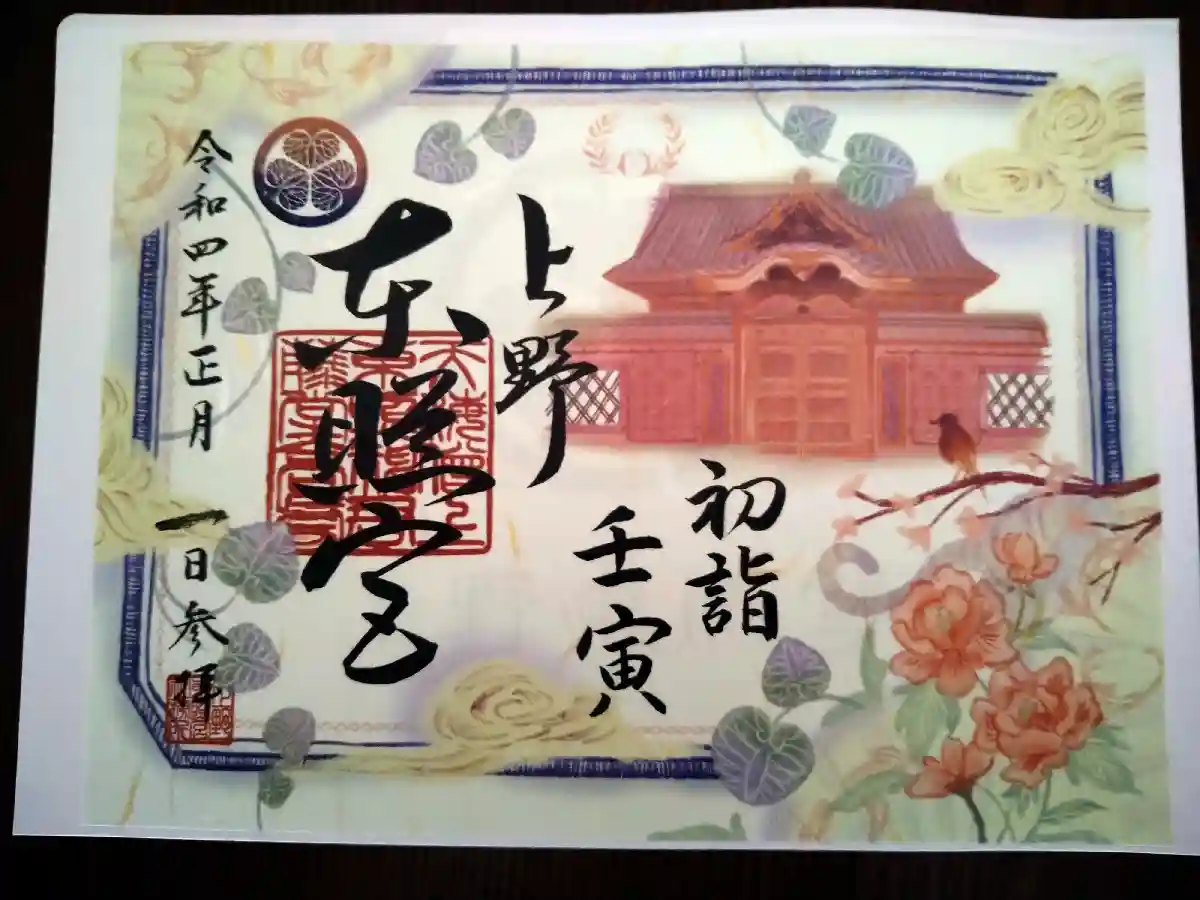 初詣
壬寅
上野
東照宮
令和四年正月一日参拝